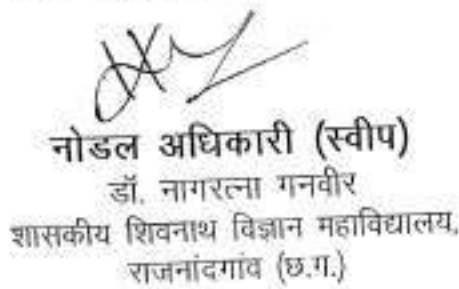 नोडल अधिकारी (स्वीप)
डॉ. नागरत्ना गनवीर
शासकीय शिवनाथ विज्ञान महाविद्यालय,
राजनांदगांव (छ.ग.)